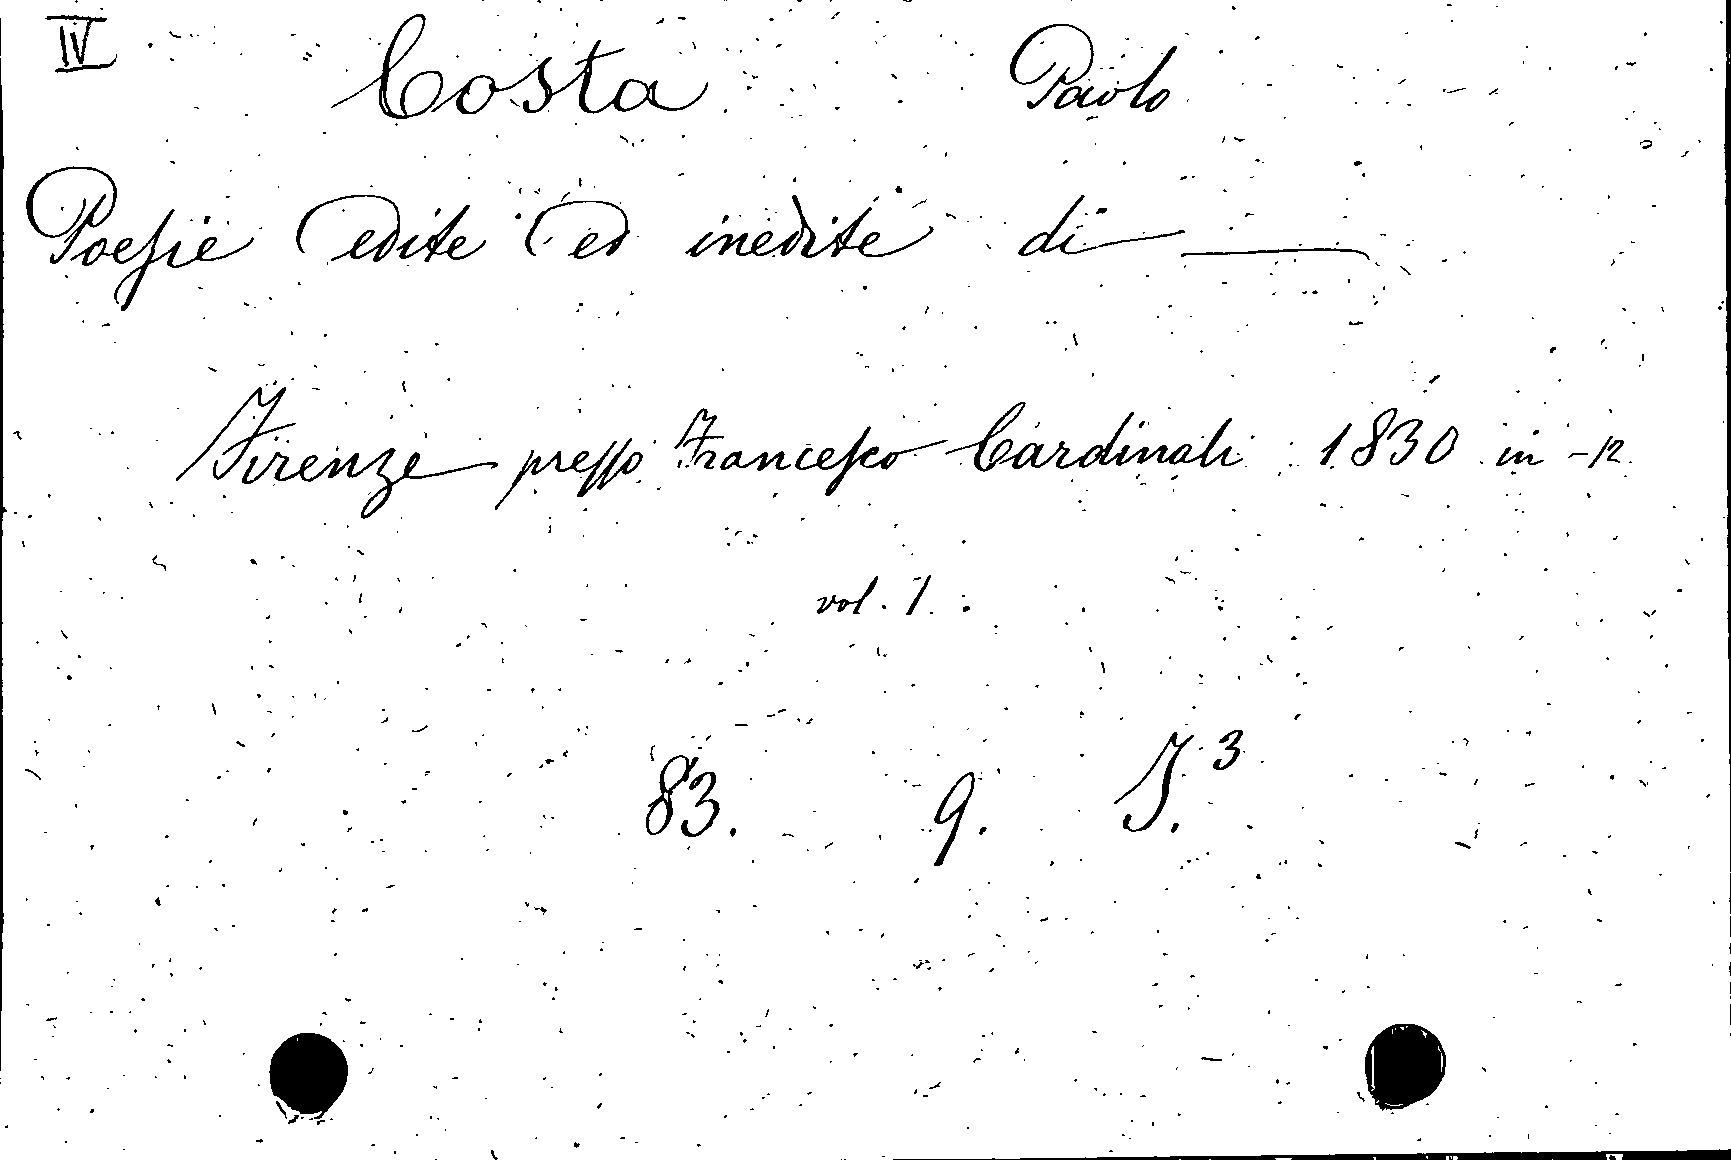 IV
Costa Paolo
Poesie edite ed inedite di ———
Firenze presso Francesco Cardinali 1830 in-12
vol. 1.
83. 9. J.3